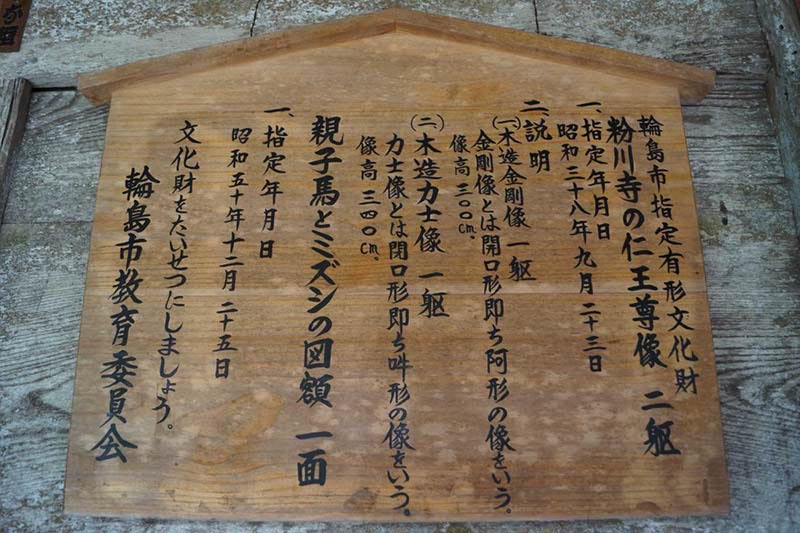 輪島市指定有形文化財
粉川寺の仁王尊像 二躯
一、指定年月日
昭和三十八年九月二十三日
二、説明
(一)木造金剛像 一躯
金剛像とは開口形即ち阿形の像をいう。
像高 三〇〇cm。
(二)木造力士像 一躯
力士像とは閉口形即ち吽形の像をいう。
像高 三四〇cm。
親子馬とミズシの図額 一面
一、指定年月日
昭和五十年十二月二十五日
文化財をたいせつにしましょう。
輪島市教育委員会